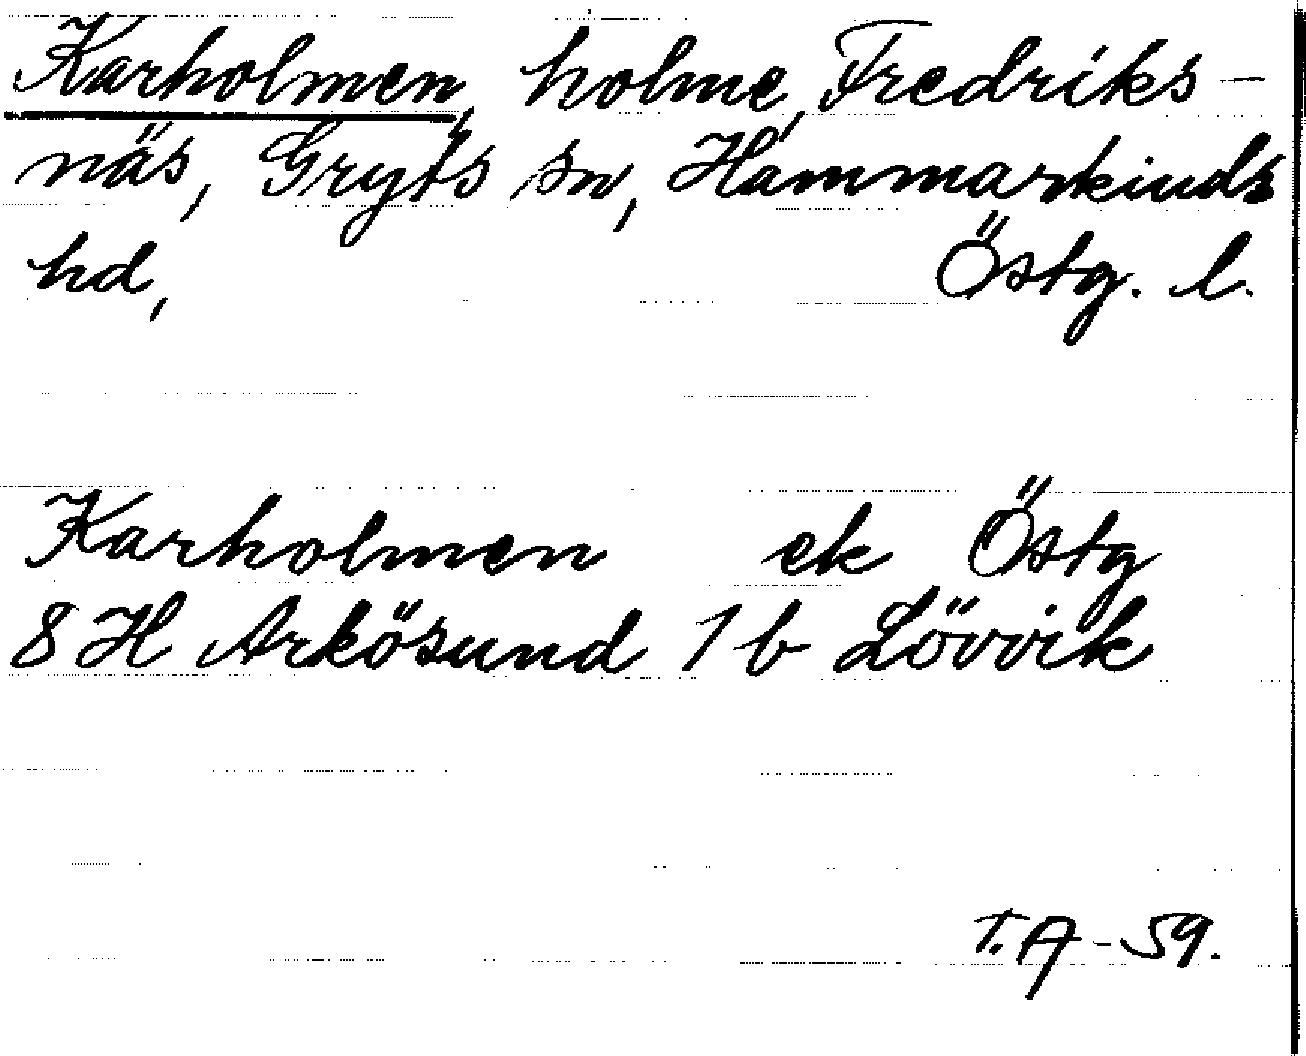 Karholmen, holme, Fredriks-
näs, Gryts sn, Hammarkinds
hd, Östg. l.
Karholmen ek Östg
8 H Arkösund 1 b Lövvik
T.A-59.